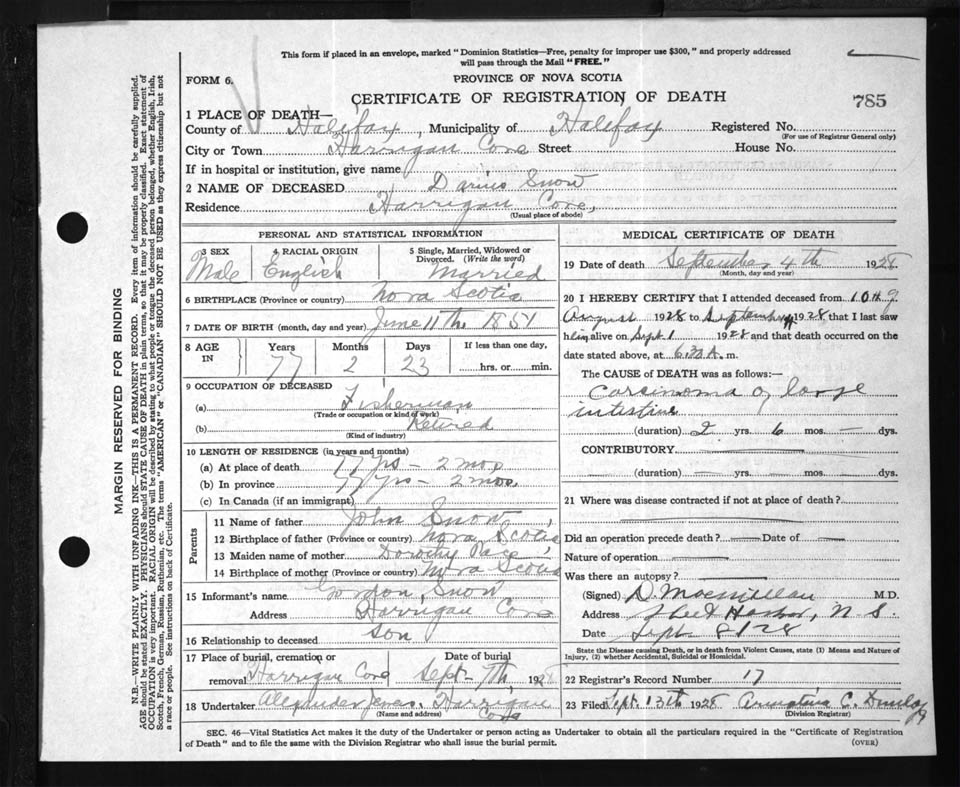 This form if placed in an envelope, marked "Dominion Statistics—Free, penalty for improper use $300," and properly addressed
will pass through the Mail "FREE."
FORM 6.
PROVINCE OF NOVA SCOTIA
CERTIFICATE OF REGISTRATION OF DEATH
785
1 PLACE OF DEATH—
County of Halifax, Municipality of Halifax Registered No.
(For use of Registrar General only)
City or Town Harrigan Cove Street House No.
If in hospital or institution, give name
2 NAME OF DECEASED Darius Snow
Residence Harrigan Cove,
(Usual place of abode)
PERSONAL AND STATISTICAL INFORMATION
3 SEX 4 RACIAL ORIGIN 5 Single, Married, Widowed or Divorced. (Write the word)
Male English Married
6 BIRTHPLACE (Province or country) Nova Scotia
7 DATE OF BIRTH (month, day and year) June 11th 1851
8 AGE IN Years Months Days If less than one day,
77 2 23 hrs. or min.
9 OCCUPATION OF DECEASED
(a) Fisherman
(Trade or occupation or kind of work)
(b) Retired
(Kind of industry)
10 LENGTH OF RESIDENCE (in years and months)
(a) At place of death 77 yrs - 2 mos
(b) In province 77 yrs - 2 mos.
(c) In Canada (if an immigrant)
Parents
11 Name of father John Snow,
12 Birthplace of father (Province or country) Nova Scotia
13 Maiden name of mother Dorothy
14 Birthplace of mother (Province or country) Nova Scotia
15 Informant's name Gordon Snow
Address Harrigan Cove
16 Relationship to deceased son
17 Place of burial, cremation or removal Harrigan Cove Date of burial Sept- 7th, 1928
18 Undertaker Alexander Jewers. Harrigan Cove
(Name and address)
MEDICAL CERTIFICATE OF DEATH
19 Date of death September 4th 1928
(Month, day and year)
20 I HEREBY CERTIFY that I attended deceased from 10th of
August 1928 to September 4 1928, that I last saw
him alive on Sept 1 1928 and that death occurred on the
date stated above, at 6.30 A. m.
The CAUSE of DEATH was as follows:—
Carcinoma of large
intestine
(duration) 2 yrs. 6 mos. — dys.
CONTRIBUTORY
(duration) — yrs. — mos. — dys.
21 Where was disease contracted if not at place of death?
Did an operation precede death? — Date of —
Nature of operation —
Was there an autopsy? —
(Signed) D. Macmillan M.D.
Address Sheet Harbor, N S.
Date Sept 8/28
State the Disease causing Death, or in death from Violent Causes, state (1) Means and Nature of
Injury, (2) whether Accidental, Suicidal or Homicidal.
22 Registrar's Record Number 17
23 Filed Sept. 13th 1928 C. Dunlop
(Division Registrar)
SEC. 46—Vital Statistics Act makes it the duty of the Undertaker or person acting as Undertaker to obtain all the particulars required in the "Certificate of Registration
of Death" and to file the same with the Division Registrar who shall issue the burial permit.
(OVER)
MARGIN RESERVED FOR BINDING
N.B.—WRITE PLAINLY WITH UNFADING INK—THIS IS A PERMANENT RECORD. Every item of information should be carefully supplied.
AGE should be stated EXACTLY. PHYSICIANS should STATE CAUSE OF DEATH in plain terms, so that it may be properly classified. Exact statement of
OCCUPATION is very important. RACIAL ORIGIN will be described by stating to what people or tongue the deceased person belonged, whether English, Irish,
Scotch, French, German, Russian, Ruthenian, etc. The terms "AMERICAN" or "CANADIAN" SHOULD NOT BE USED as they express citizenship but not
a race or people. See instructions on back of Certificate.